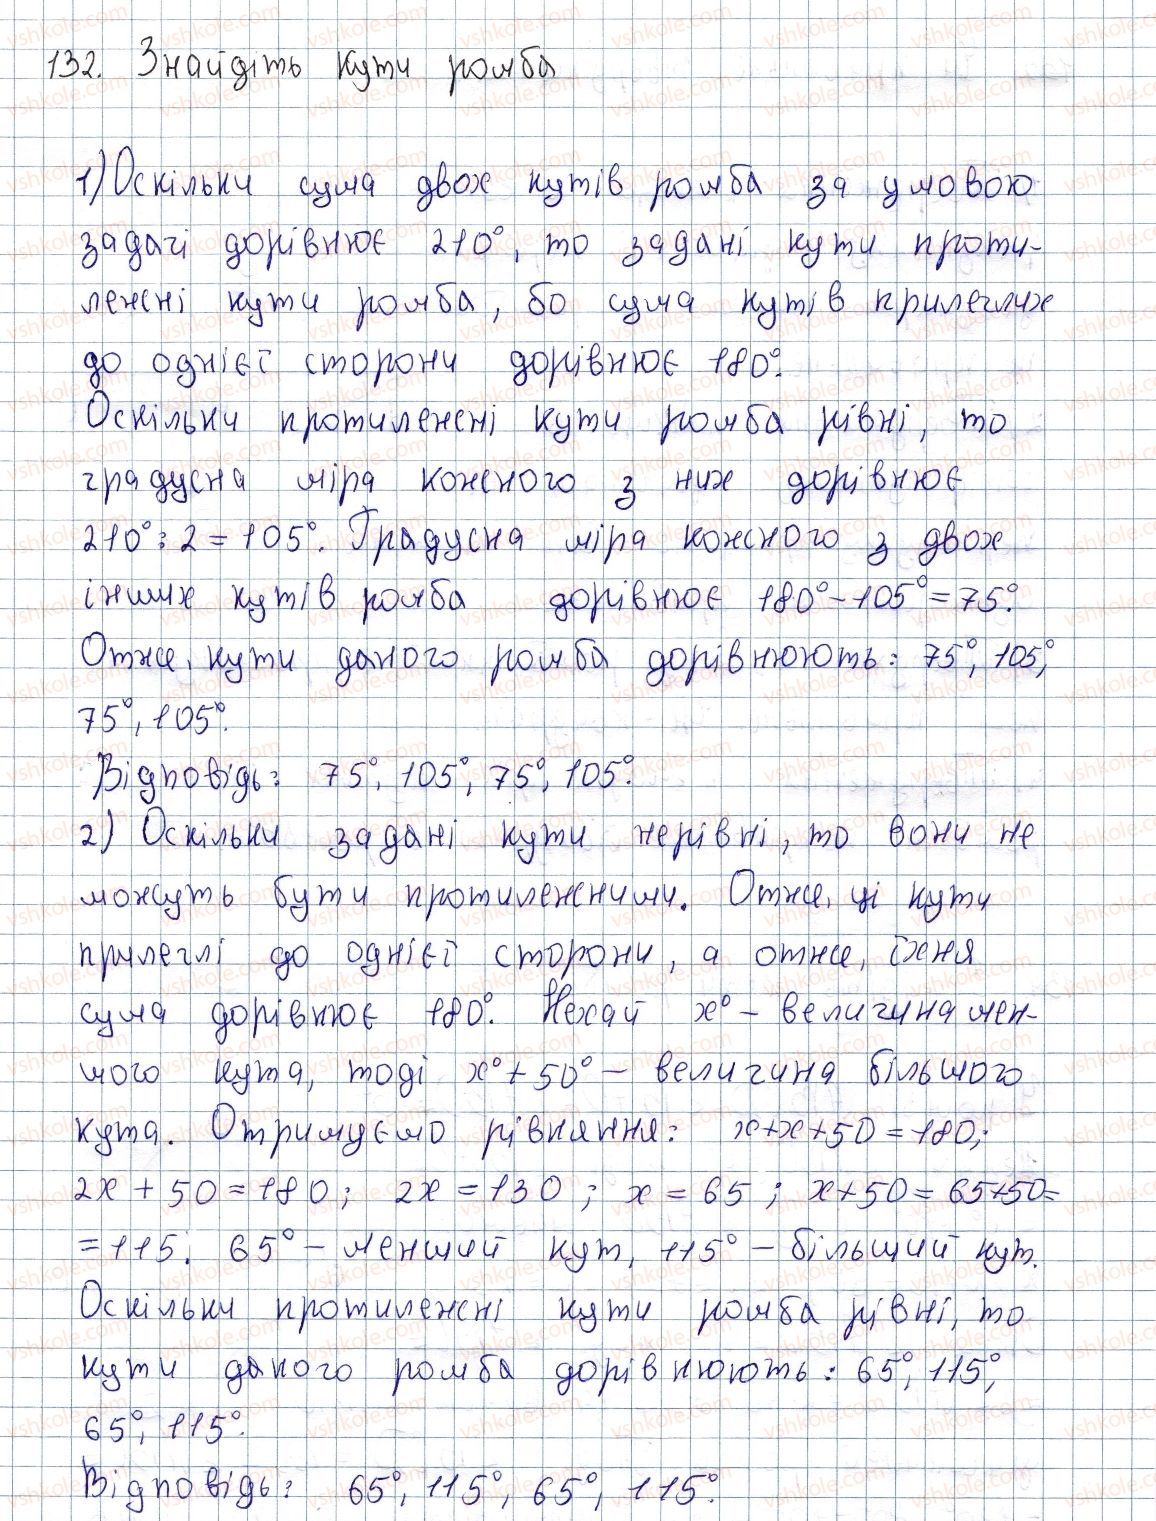 132. Знайдіть кути ромба
1) Оскільки сума двох кутів ромба за умовою
задачі дорівнює 210°, то задані кути проти-
лежні кути ромба, бо сума кутів прилеглих
до однієї сторони дорівнює 180°.
Оскільки протилежні кути ромба рівні, то
градусна міра кожного з них дорівнює
210° : 2 = 105°. Градусна міра кожного з двох
інших кутів ромба дорівнює 180° - 105° = 75°.
Отже, кути даного ромба дорівнюють: 75°, 105°,
75°, 105°.
Відповідь: 75°, 105°, 75°, 105°.
2) Оскільки задані кути нерівні, то вони не
можуть бути протилежними. Отже, ці кути
прилеглі до однієї сторони, а отже, їхня
сума дорівнює 180°. Нехай x° - величина мен-
шого кута, тоді x° + 50° - величина більшого
кута. Отримуємо рівняння: x + x + 50 = 180;
2x + 50 = 180; 2x = 130; x = 65; x + 50 = 65 + 50 =
= 115. 65° - менший кут, 115° - більший кут.
Оскільки протилежні кути ромба рівні, то
кути даного ромба дорівнюють: 65°, 115°,
65°, 115°.
Відповідь: 65°, 115°, 65°, 115°.